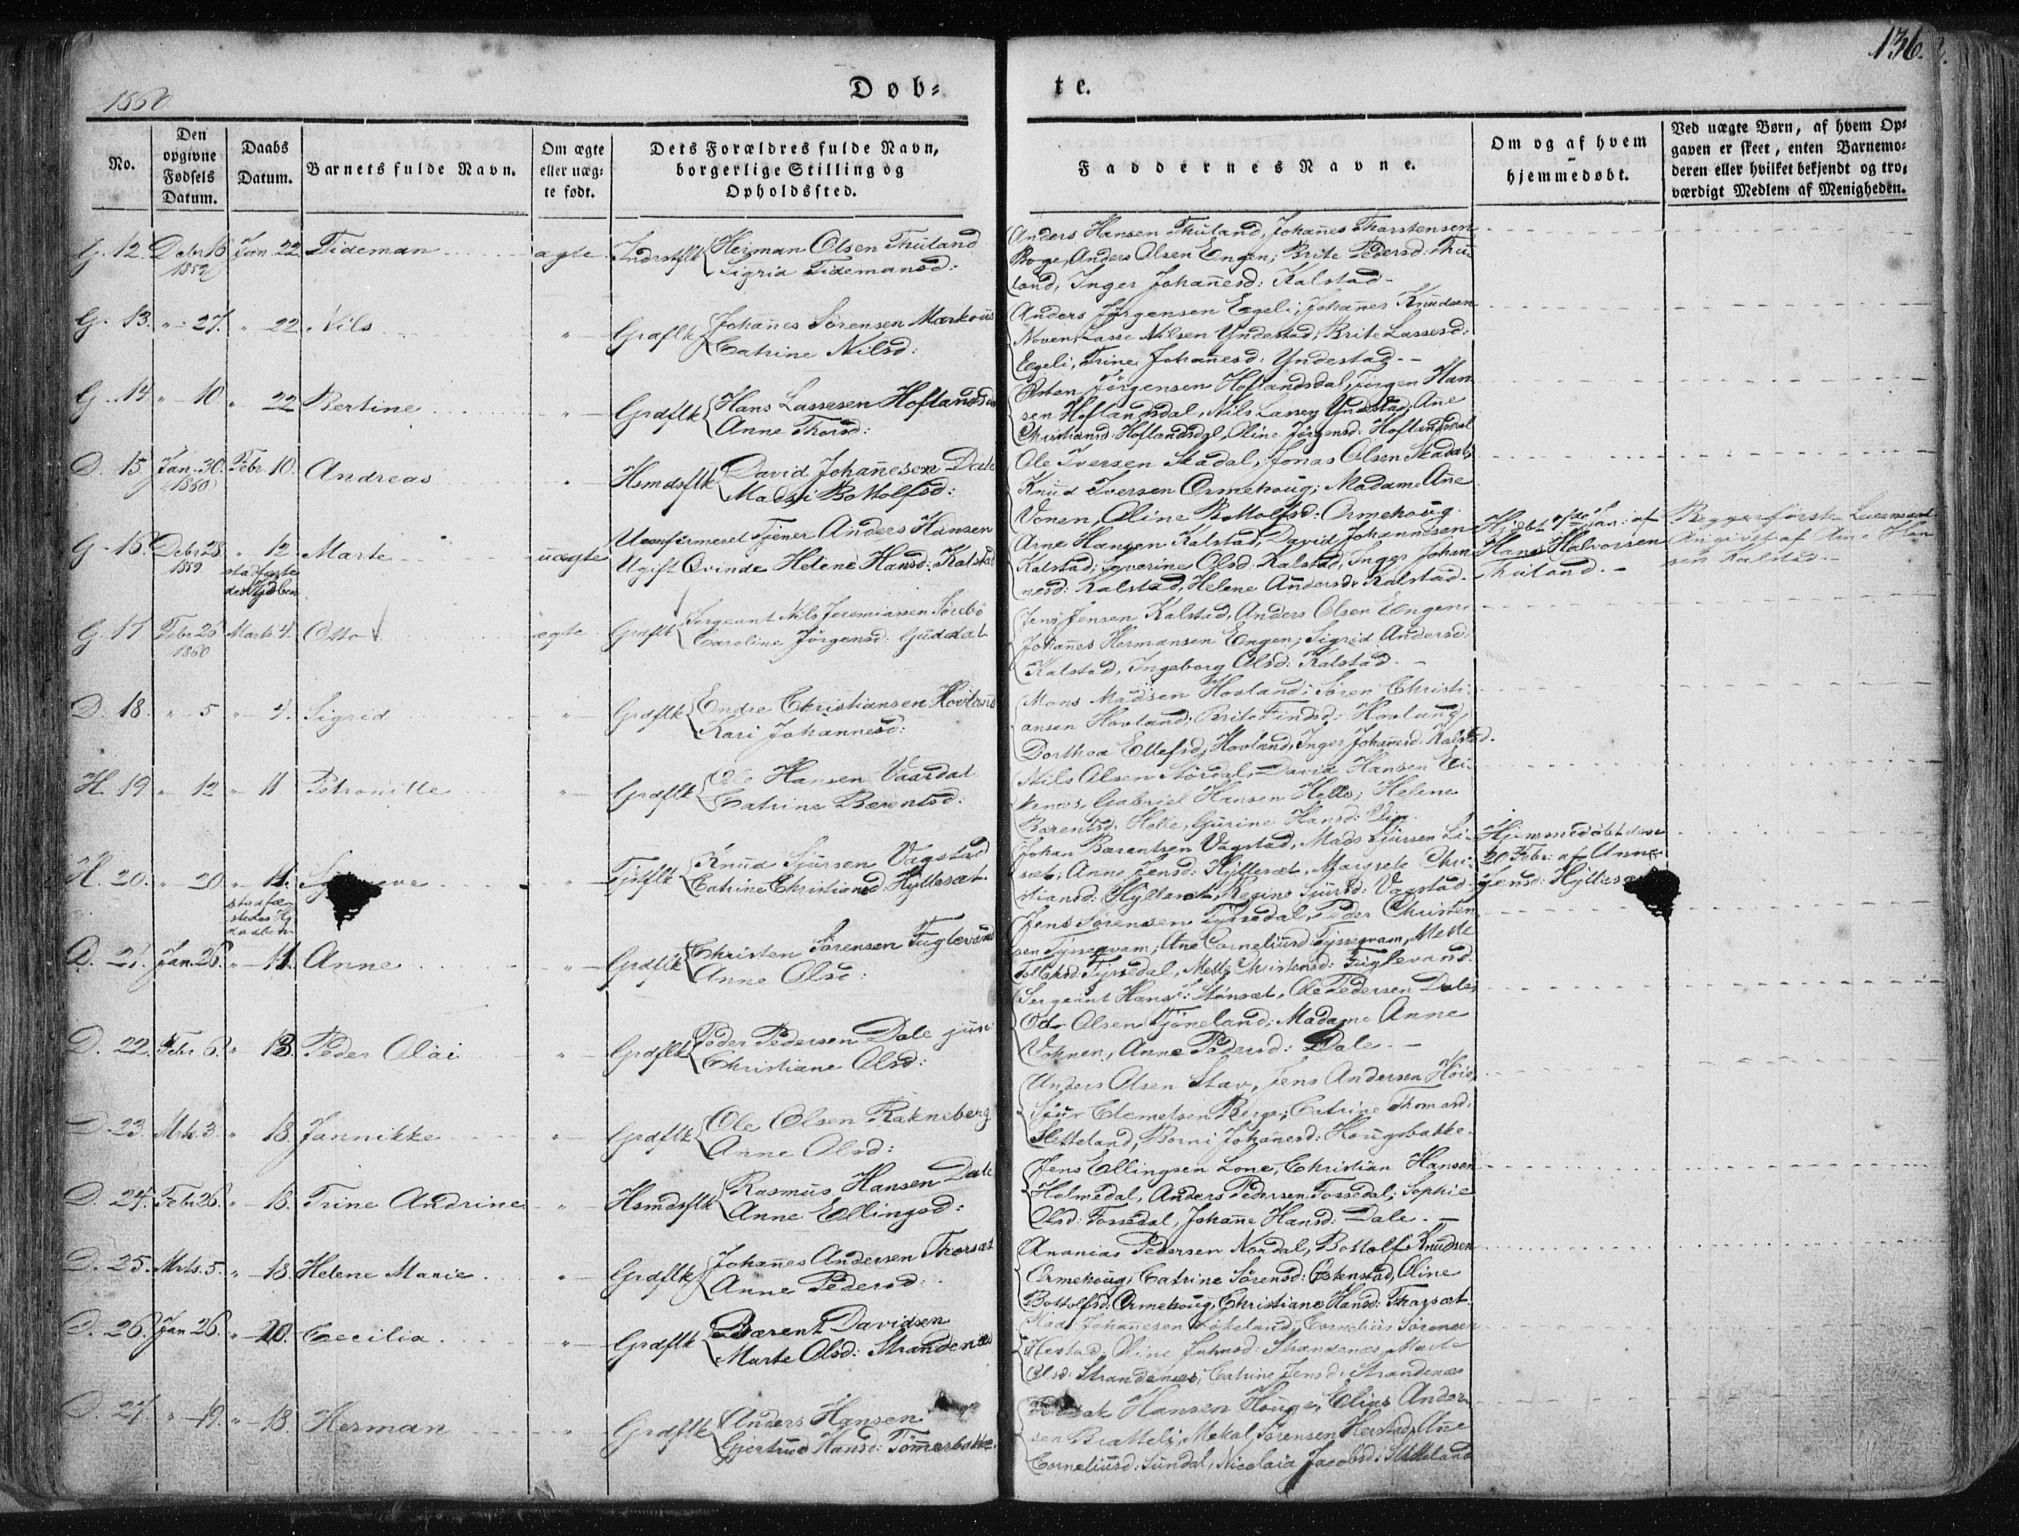 1860
Døb=
te.
136.
No.
Den
opgivne
Fødsels
Datum.
Daabs
Datum.
Barnets fulde Navn.
Om ægte
eller uæg-
te født.
Dets Forældres fulde Navn,
borgerlige Stilling og
Opholdssted.
Faddernes Navne.
Om og af hvem
hjemmedøbt.
Ved uægte Børn, af hvem Op-
gaven er skeet, enten Barnemo-
deren eller hvilket bekjendt og tro-
værdigt Medlem af Menigheden.
G. 12. Debr 16 1859 Jan 22 Tideman ægte Herman Olsen Thuland
Sigrid Tidemansd:
Anders Hansen Thuland, Johañes Thorstensen
Boge, Anders Olsen Engen; Brite Pedersd: Thu
land, Inger Johañesd: Kalstad.
G. 13. " 27. " 22 Nils " Grdflk Johañes Sørensen
Catrine Nilsd:
Anders Jørgensen Egeli, Johañes Knudsen
Noven, Lasse Nilsen Yndestad, Brite Lassesd:
Egeli, Trine Johañesd: Yndestad.
G. 14 " 10. " 22 Bertine " Grdflk Hans Lassesen Hoflandsdal
Anne Thorsd:
Østen Jørgensen Hoflandsdal, Jørgen Han
sen Hoflandsdal, Nils Lassen Yndestad; Ane
Christiansd: Hoflandsdal, Oline Jørgensd: Hoflandsdal
D. 15. Jan. 30. 1860 Febr. 10. Andreas " Hsmdsflk David Johañesen Dale
Madsi Bottolfsd:
Ole Iversen Skadal, Jonas Olsen Skadal;
Knud Iversen Ormehoug; Madame Ane
Vonen, Oline Bottolfsd: Ormehoug.
G. 16. Debr 28. 1859 " 12 Marte uægte Uconfirmeret Tjener Anders Hansen
Ugift Qvinde Helene Hansd: Kalstad
Arne Hansen Kalstad, David Johannesen
Kalstad; Severine Olsd: Kalstad, Inger Johan
nesd: Kalstad, Helene Andersd: Kalstad.
Hans Halvorsen
Thuland.
Begges første Leiermaal
Angivet af Arne Han
sen Kalstad
G. 17 Febr 25 1860 Marts 4. Otto ægte Grdflk Sergeant Nils Jeremiassen Sørebø
Caroline Jørgensd: Guddal
Jens Jensen Kalstad, Anders Olsen Engen,
Johañes Hermansen Engen; Sigrid Andersd:
Kalstad, Ingeborg Olsd: Kalstad.
D. 18. " 5 " 4. Sigrid " Grdflk Endre Christiansen Hovland
Kari Johannesd:
Mons Madsen Hovland, Søren Christi
ansen Hovland; Brite Findsd: Hovland,
Dorthea Ellefsd: Hovland, Inger Johañesd: Kalstad.
H. 19 " 12 " 11 Petronille " Grdflk Ole Hansen Vaardal
Catrine Bærentsd:
Nils Olsen Stordal, David Hansen Vi
kenes, Gabriel Hansen Helle; Helene
Bærentsd: Helle, Gurine Hansd: Vim.
H. 20. " 20. " 11. " Knud Sjursen Vagstad
Catrine Christiansd: Hyllesæt
Johan Bærentsen Vagstad, Mads Sjursen Li
sæt; Anne Jensd: Hyllesæt, Margrete Chri
stiansd: Hyllesæt, Regine Sjursd: Vagstad.
Hjemmedøbt den
20 Febr: af Anne
Jensd: Hyllesæt
D. 21. Jan. 26. " 11. Anne " Grdflk Christen Sørensen Fuglevand
Anne Olsd:
Jens Sørensen Tyssedal, Peder Christen
sen Tyssegvam; Ane Corneliusd: Tyssegvam, Mette
Tollefsd: Tyssedal, Mette Christensd: Fuglevand.
D. 22. Febr. 6. " 13. Peder Olai " Grdflk Peder Pedersen Dale jun:
Christiane Olsd:
Sergeant Hans Stønsæt, Ole Pedersen Dale,
Odr Olsen Tjøneland; Madame Anne
Vohnen, Anne Pedersd: Dale.
D. 23. Mrts. 3. " 18. Jannikke " Grdflk Ole Olsen Rakneberg
Anne Olsd:
Anders Olsen Stav, Jens Andersen Høie,
Sjur Clemetsen Berge; Catrine Thomasd:
Sletteland, Borni Johañesd: Hougsbakke.
D. 24. Febr 26. " 18. Trine Andrine " Hsmdsflk Rasmus Hansen Dale
Anne Ellingsd:
Jens Ellingsen Lone, Christian Hansen
Holmedal, Anders Pedersen Fossedal; Sophie
Olsd: Fossedal, Johañe Hansd: Dale.
D. 25. Mrts. 5. " 18. Helene Marie. " Grdflk Johañes Andersen Thorsæt
Anne Pedersd:
Ananias Pedersen Nordal, Bottolf Knudsen
Ormehoug; Catrine Sørensd: Østenstad, Oline
Bottolfsd: Ormehoug, Christiane Hansd: Thorsæt.
D. 26. Jan 26. " 20. Cecilia " Grdflk Bærent Davidsen
Marte Olsd: Strandenæs
Mads Johañesen Løkeland, Cornelius Sørensen
Hestad, Oline Jahnsd: Strandenæs, Marte
Olsd: Strandenæs, Catrine Jensd: Strandenæs
D. 27 " 19. " 18. Herman " Grdflk Anders Hansen
Gjertrud Hansd: Tømerbakke.
Hansen Houge, Elias Ander
sen Bratteli, Mekal Sørensen Herstad, Ane
Corneliusd: Sundal, Nicolaia Jacobsd: Sletteland